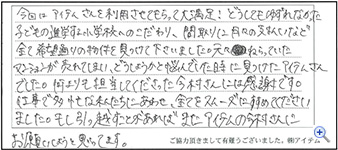 今回はアイテムさんを利用させてもらって大満足!どうしてもゆずれなかった
子どもの進学する小学校へのこだわり、間取りに月々の支払いなど
全て希望通りの物件を見つけて下さいました。元々ねらっていた
マンションが売れてしまい、どうしようかと悩んでいた時に見つけたアイテムさん
でした。何よりも担当してくださった今村さんには感謝です。
仕事で多忙な私たちにあわせ、全てをスムーズに進めてください
ました。もし引っ越すことがあればまたアイテムの今村さんに
お願いしようと思ってます。
ご協力頂きまして有難うございました。㈱アイテム